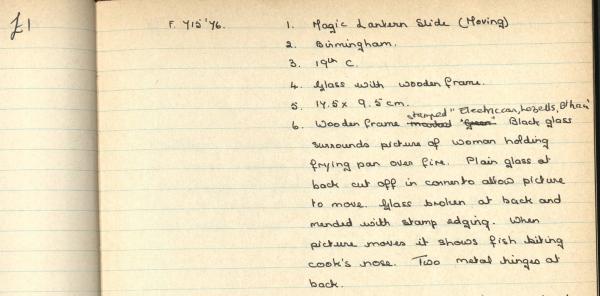 £1
F. 715'76.
1. Magic Lantern Slide (Moving)
2. Birmingham.
3. 19th C.
4. Glass with wooden frame.
5. 17.5 x 9.5 cm.
stamped "Electrician, Lozells, B'ham"
6. Wooden frame marked "Green" Black glass
surrounds picture of woman holding
frying pan over fire. Plain glass at
back cut off in corner to allow picture
to move. Glass broken at back and
mended with stamp edging. When
picture moves it shows fish biting
cook's nose. Two metal hinges at
back.